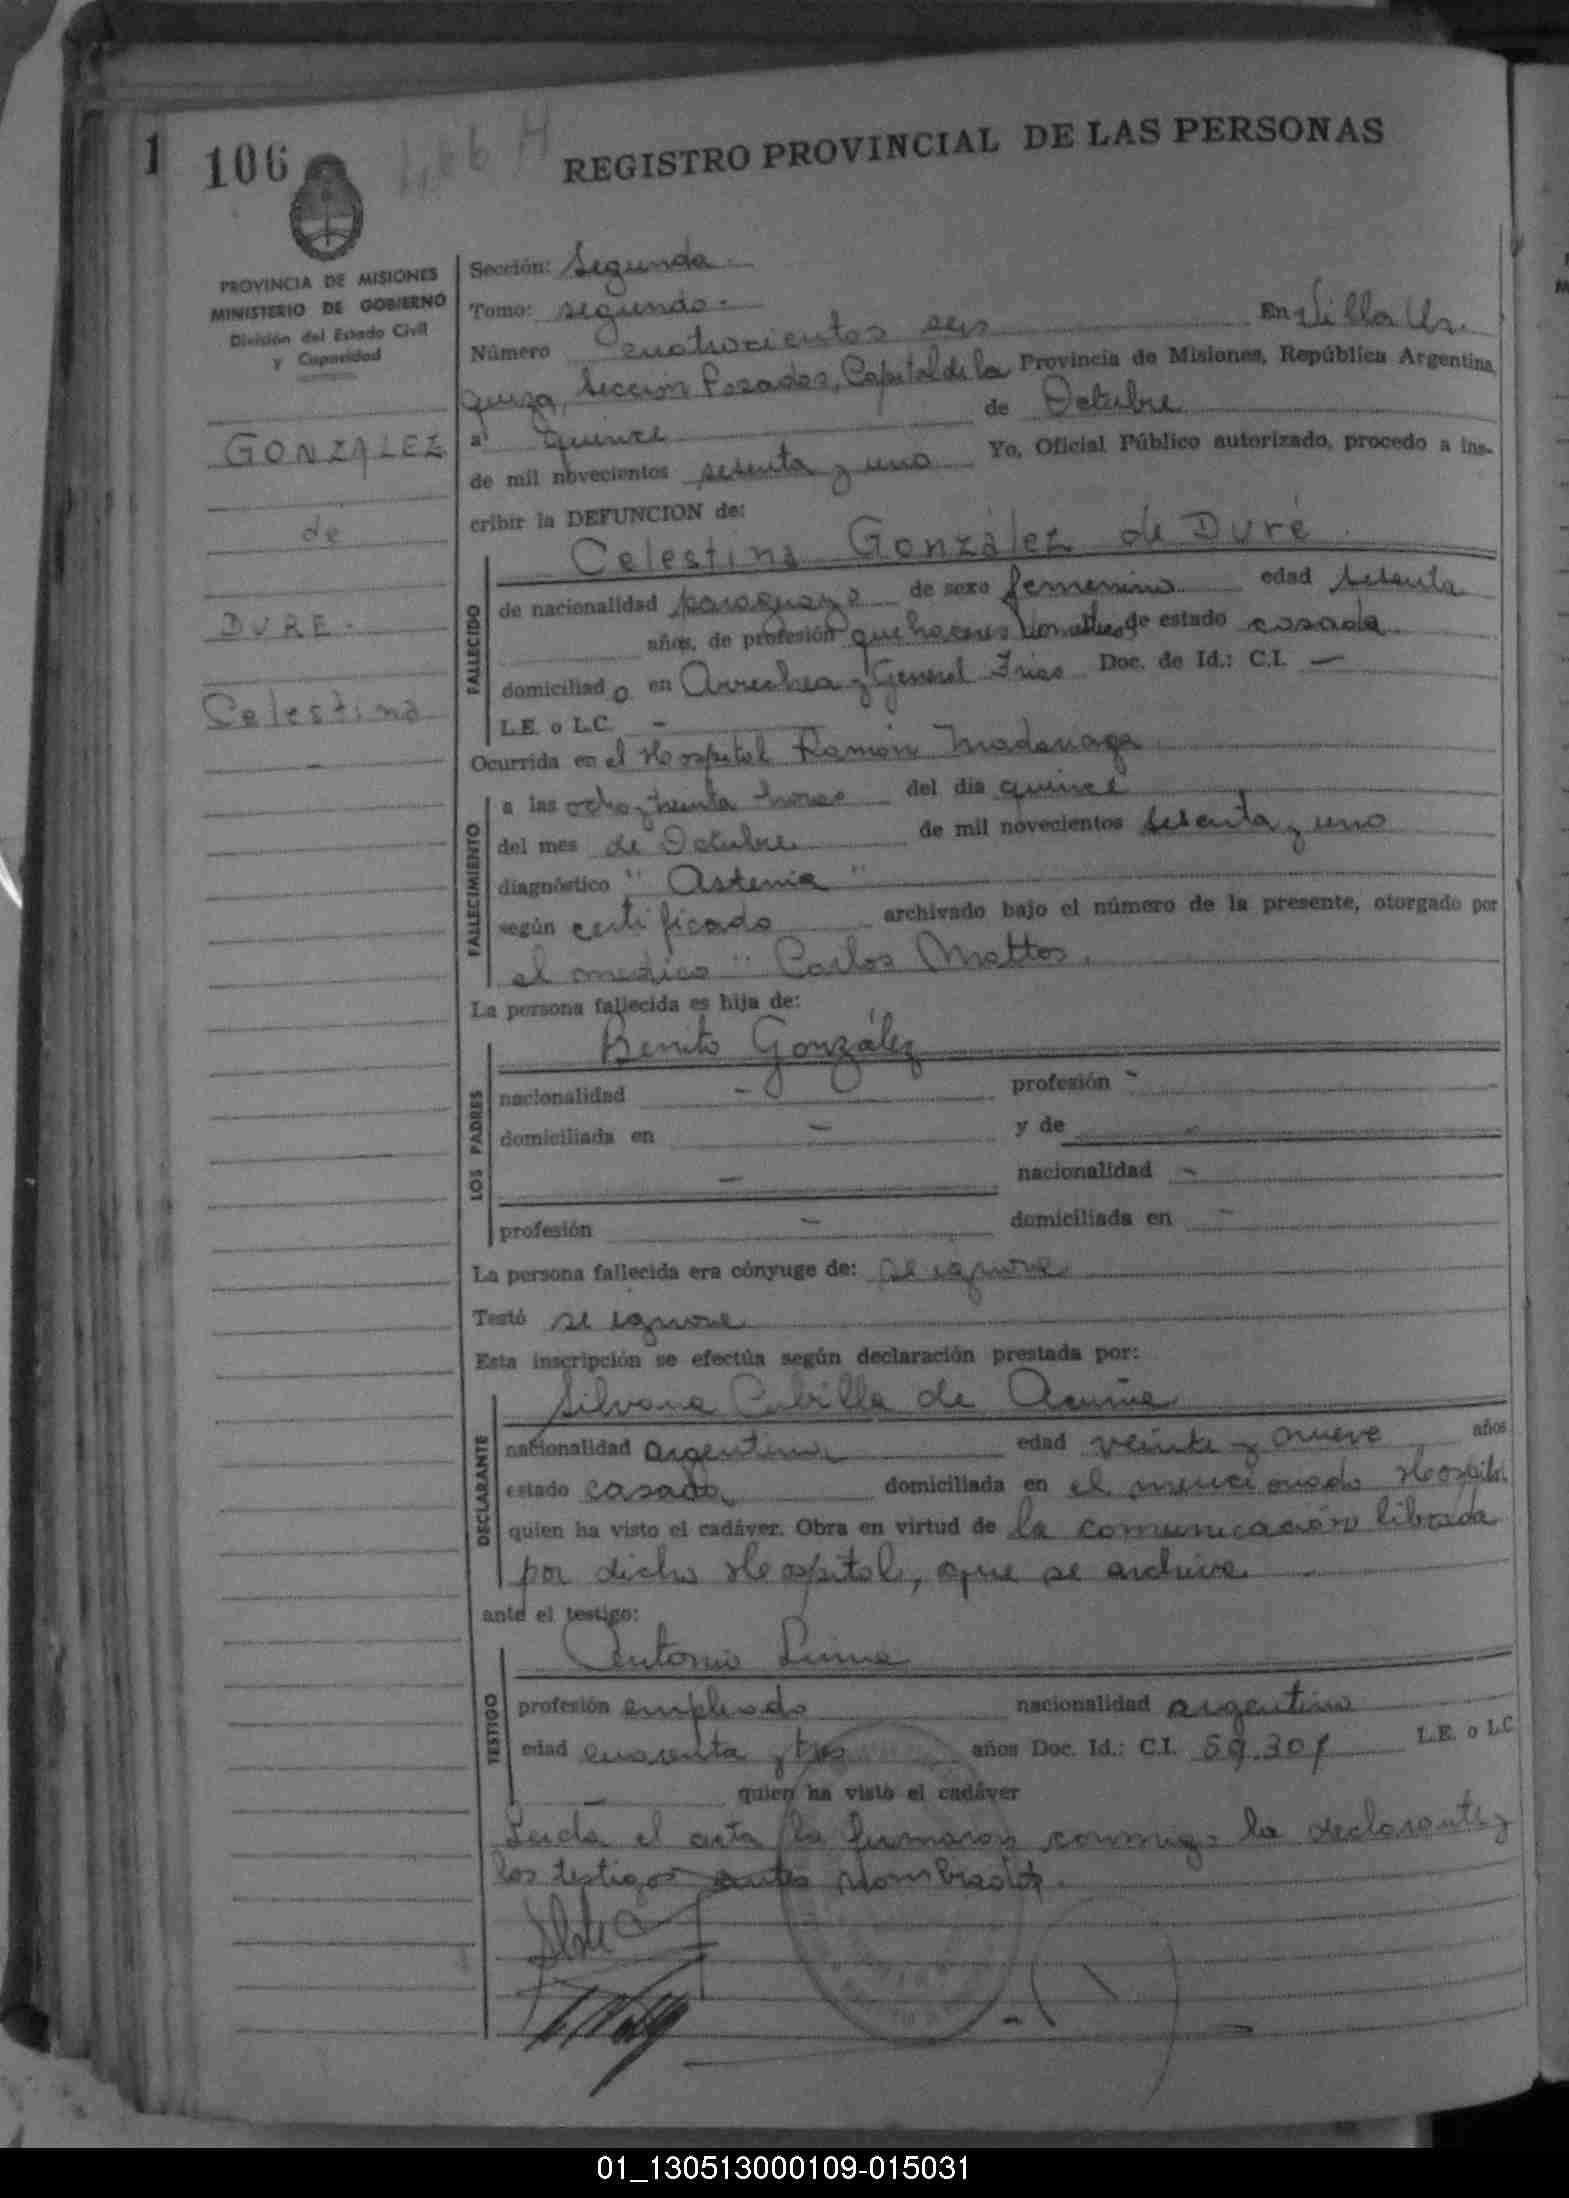 1 106 406 H
REGISTRO PROVINCIAL DE LAS PERSONAS
PROVINCIA DE MISIONES
MINISTERIO DE GOBIERNO
División del Estado Civil
y Capacidad
GONZALEZ
de
DURE.
Celestina
Sección: Segunda.
Tomo: segundo.
Número cuatrocientos seis En Villa Ur
quiza, Sección Posadas, Capital de la Provincia de Misiones, República Argentina,
a quince de Octubre
de mil novecientos setenta y uno Yo, Oficial Público autorizado, procedo a ins-
cribir la DEFUNCION de:
Celestina González de Duré
FALLECIDO
de nacionalidad paraguaya de sexo femenino edad setenta
años, de profesión quehaceres domesticos de estado casada
domiciliado en Arrechea y General Frias Doc. de Id.: C.I. —
L.E. o L.C. -
Ocurrida en el Hospital Ramón Madariaga
FALLECIMIENTO
a las ocho y treinta horas del día quince
del mes de Octubre de mil novecientos setenta y uno
diagnóstico " Astenia "
según certificado archivado bajo el número de la presente, otorgado por
el medico " Carlos Mattos.
La persona fallecida es hija de:
LOS PADRES
Benito González
nacionalidad - profesión -
domiciliada en - y de -
- nacionalidad -
profesión - domiciliada en -
La persona fallecida era cónyuge de: se ignora
Testó se ignora
Esta inscripción se efectúa según declaración prestada por:
DECLARANTE
Silvana Cubilla de Acuña
nacionalidad argentina edad veinte y nueve años
estado casada domiciliada en el mencionado Hospital
quien ha visto el cadáver. Obra en virtud de la comunicación librada
por dicho Hospital, que se archiva
ante el testigo:
TESTIGO
Antonio
profesión empleado nacionalidad argentino
edad cuarenta y tres años Doc. Id.: C.I. 59.301 L.E. o L.C
- quien ha visto el cadáver
Leida el acta la firmaron conmigo la declarante y
los testigos antes nombrados.
01_130513000109-015031